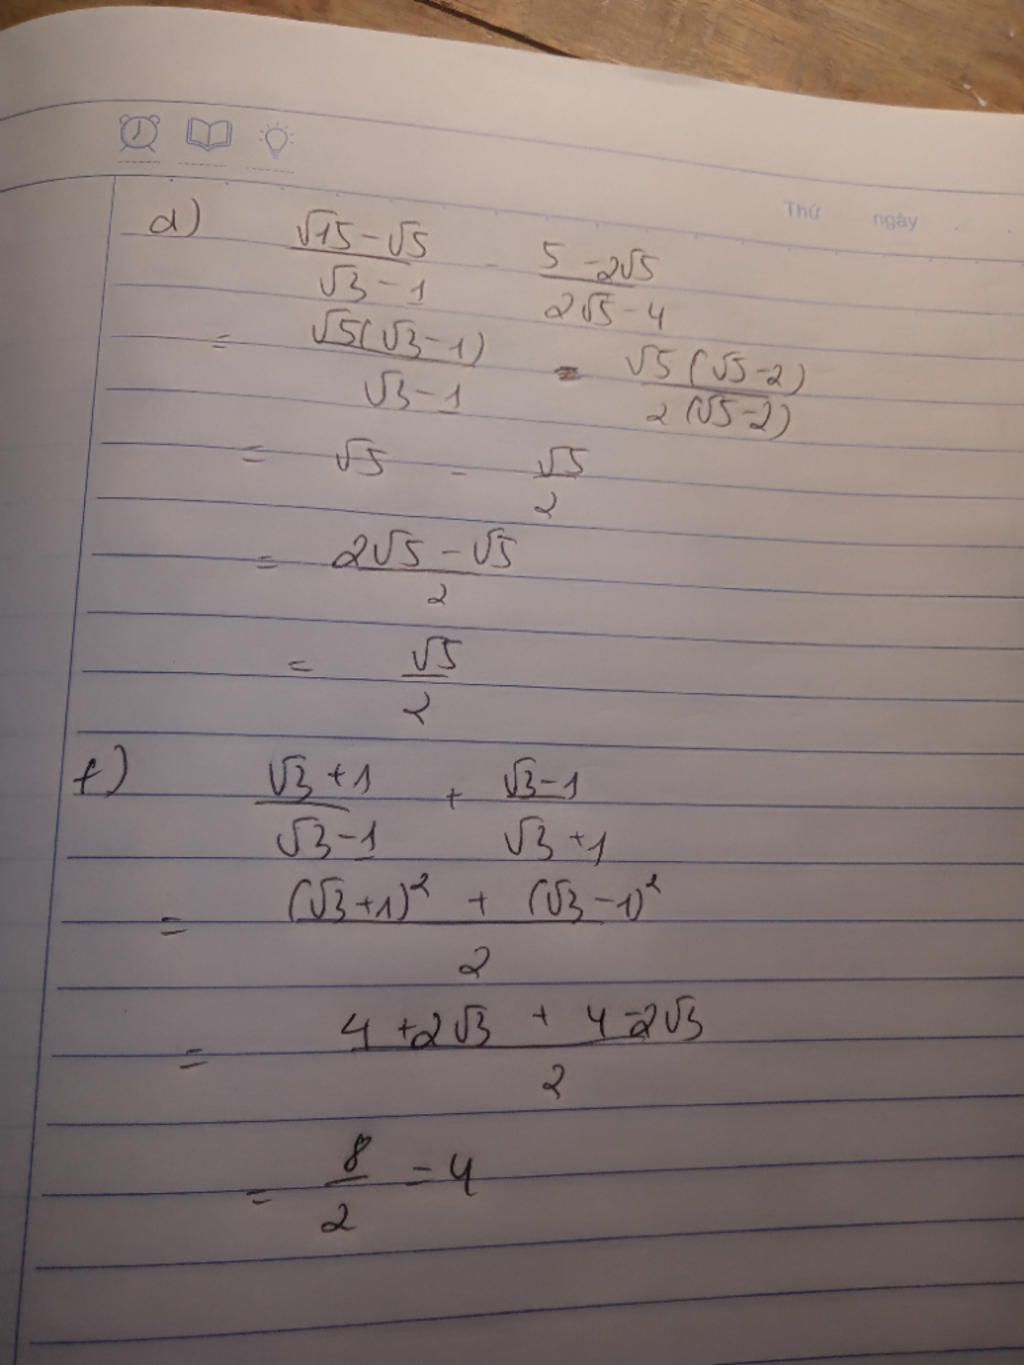 Thứ ngày
d) (√15 - √5)/(√3 - 1) - (5 - 2√5)/(2√5 - 4)
= √5(√3 - 1)/(√3 - 1) - √5(√5 - 2)/2(√5 - 2)
= √5 - √5/2
= (2√5 - √5)/2
= √5/2
f) (√3 + 1)/(√3 - 1) + (√3 - 1)/(√3 + 1)
= ((√3 + 1)² + (√3 - 1)²)/2
= (4 + 2√3 + 4 - 2√3)/2
= 8/2 = 4